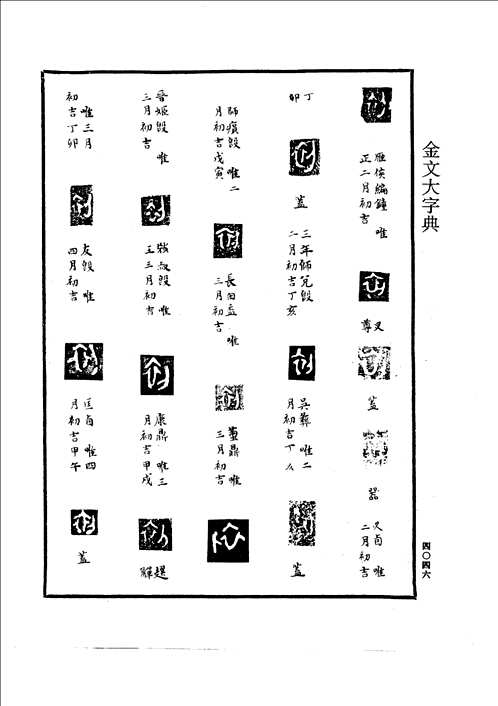 金文大字典
四〇四六
雁侯編鐘 唯
正二月初吉
又
尊
蓋
器
又卣 唯
二月初吉
丁
卯
蓋
三年師兌𣪘
二月初吉丁亥
吳彝 唯二
月初吉丁亥
蓋
師㾓𣪘 唯二
月初吉戊寅
長甶盉 唯
三月初吉
鼎 唯
三月初吉
晉姬𣪘 唯
三月初吉
叔𣪘 唯
王三月初吉
康鼎 唯三
月初吉甲戌
趩
觶
唯三月
初吉丁卯
友𣪘 唯
四月初吉
匡卣 唯四
月初吉甲午
蓋